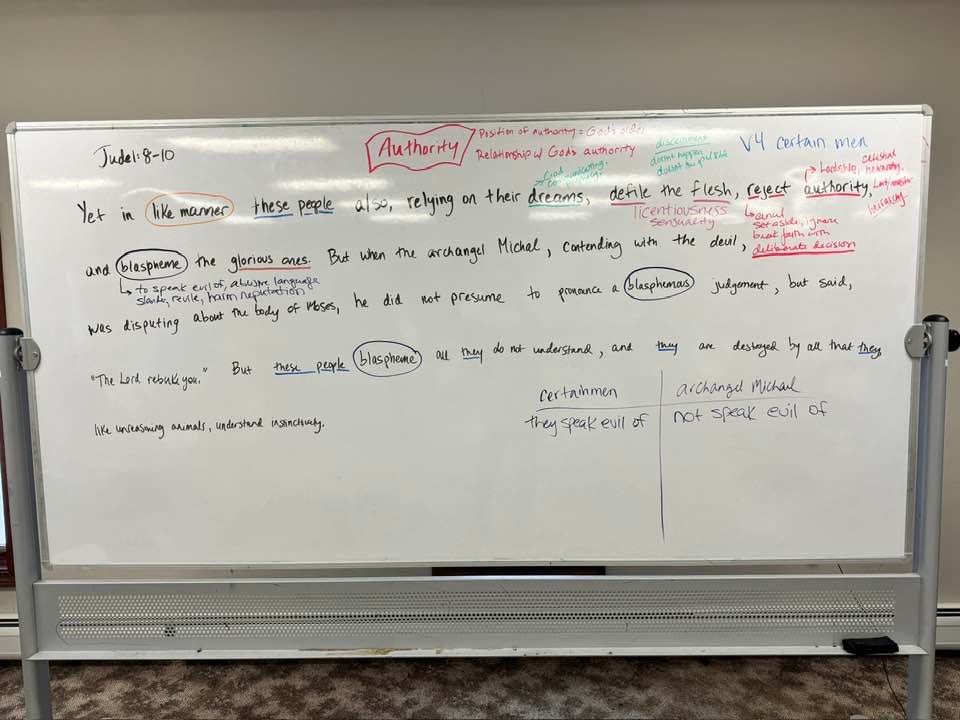 Jude1:8-10
Authority
Position of authority = God's order
Relationship w/ Gods authority
discernment
doesnt happen
V4 certain men
Lordship, celestial
hierarchy
God
communicating
Yet in like manner these people also, relying on their dreams, defile the flesh, reject authority,
Lord/master
hierarchy
licentiousness
sensuality
set aside, ignore
break faith with
deliberate decision
and blaspheme the glorious ones. But when the archangel Michal, contending with the devil,
to speak evil of, abusive language
slander, revile, harm reputation
was disputing about the body of Moses, he did not presume to pronounce a blasphemous judgement, but said,
"The Lord rebuke you." But these people blaspheme all they do not understand, and they are destroyed by all that they,
like unreasoning animals, understand instinctively.
certain men archangel Michael
they speak evil of not speak evil of